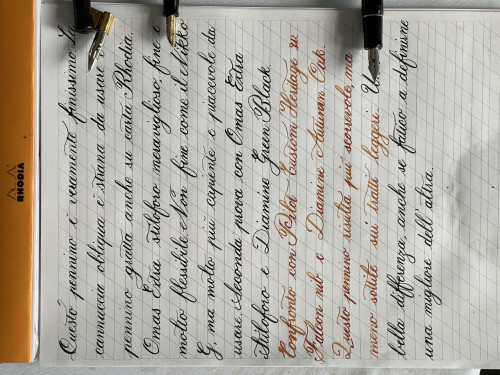 RHODIA
Questo pennino è veramente finissimo. La
cannuccia obliqua è strana da usare
pennino gratta anche su carta Rhodia.
Omas Extra stiloforo meraviglioso, fine e
molto flessibile. Non fine come il Nikko
G, ma molto più capiente e piacevole da
usare. Seconda prova con Omas Extra
Stiloforo e Diamine Green Black.
Confronto con Pilot Custom Heritage
Falcon nib e Diamine Autumn Oak.
Questo pennino risulta più scorrevole, ma
meno sottile sui tratti leggeri.
bella differenza, anche se fatico a definirne
una migliore dell'altra.